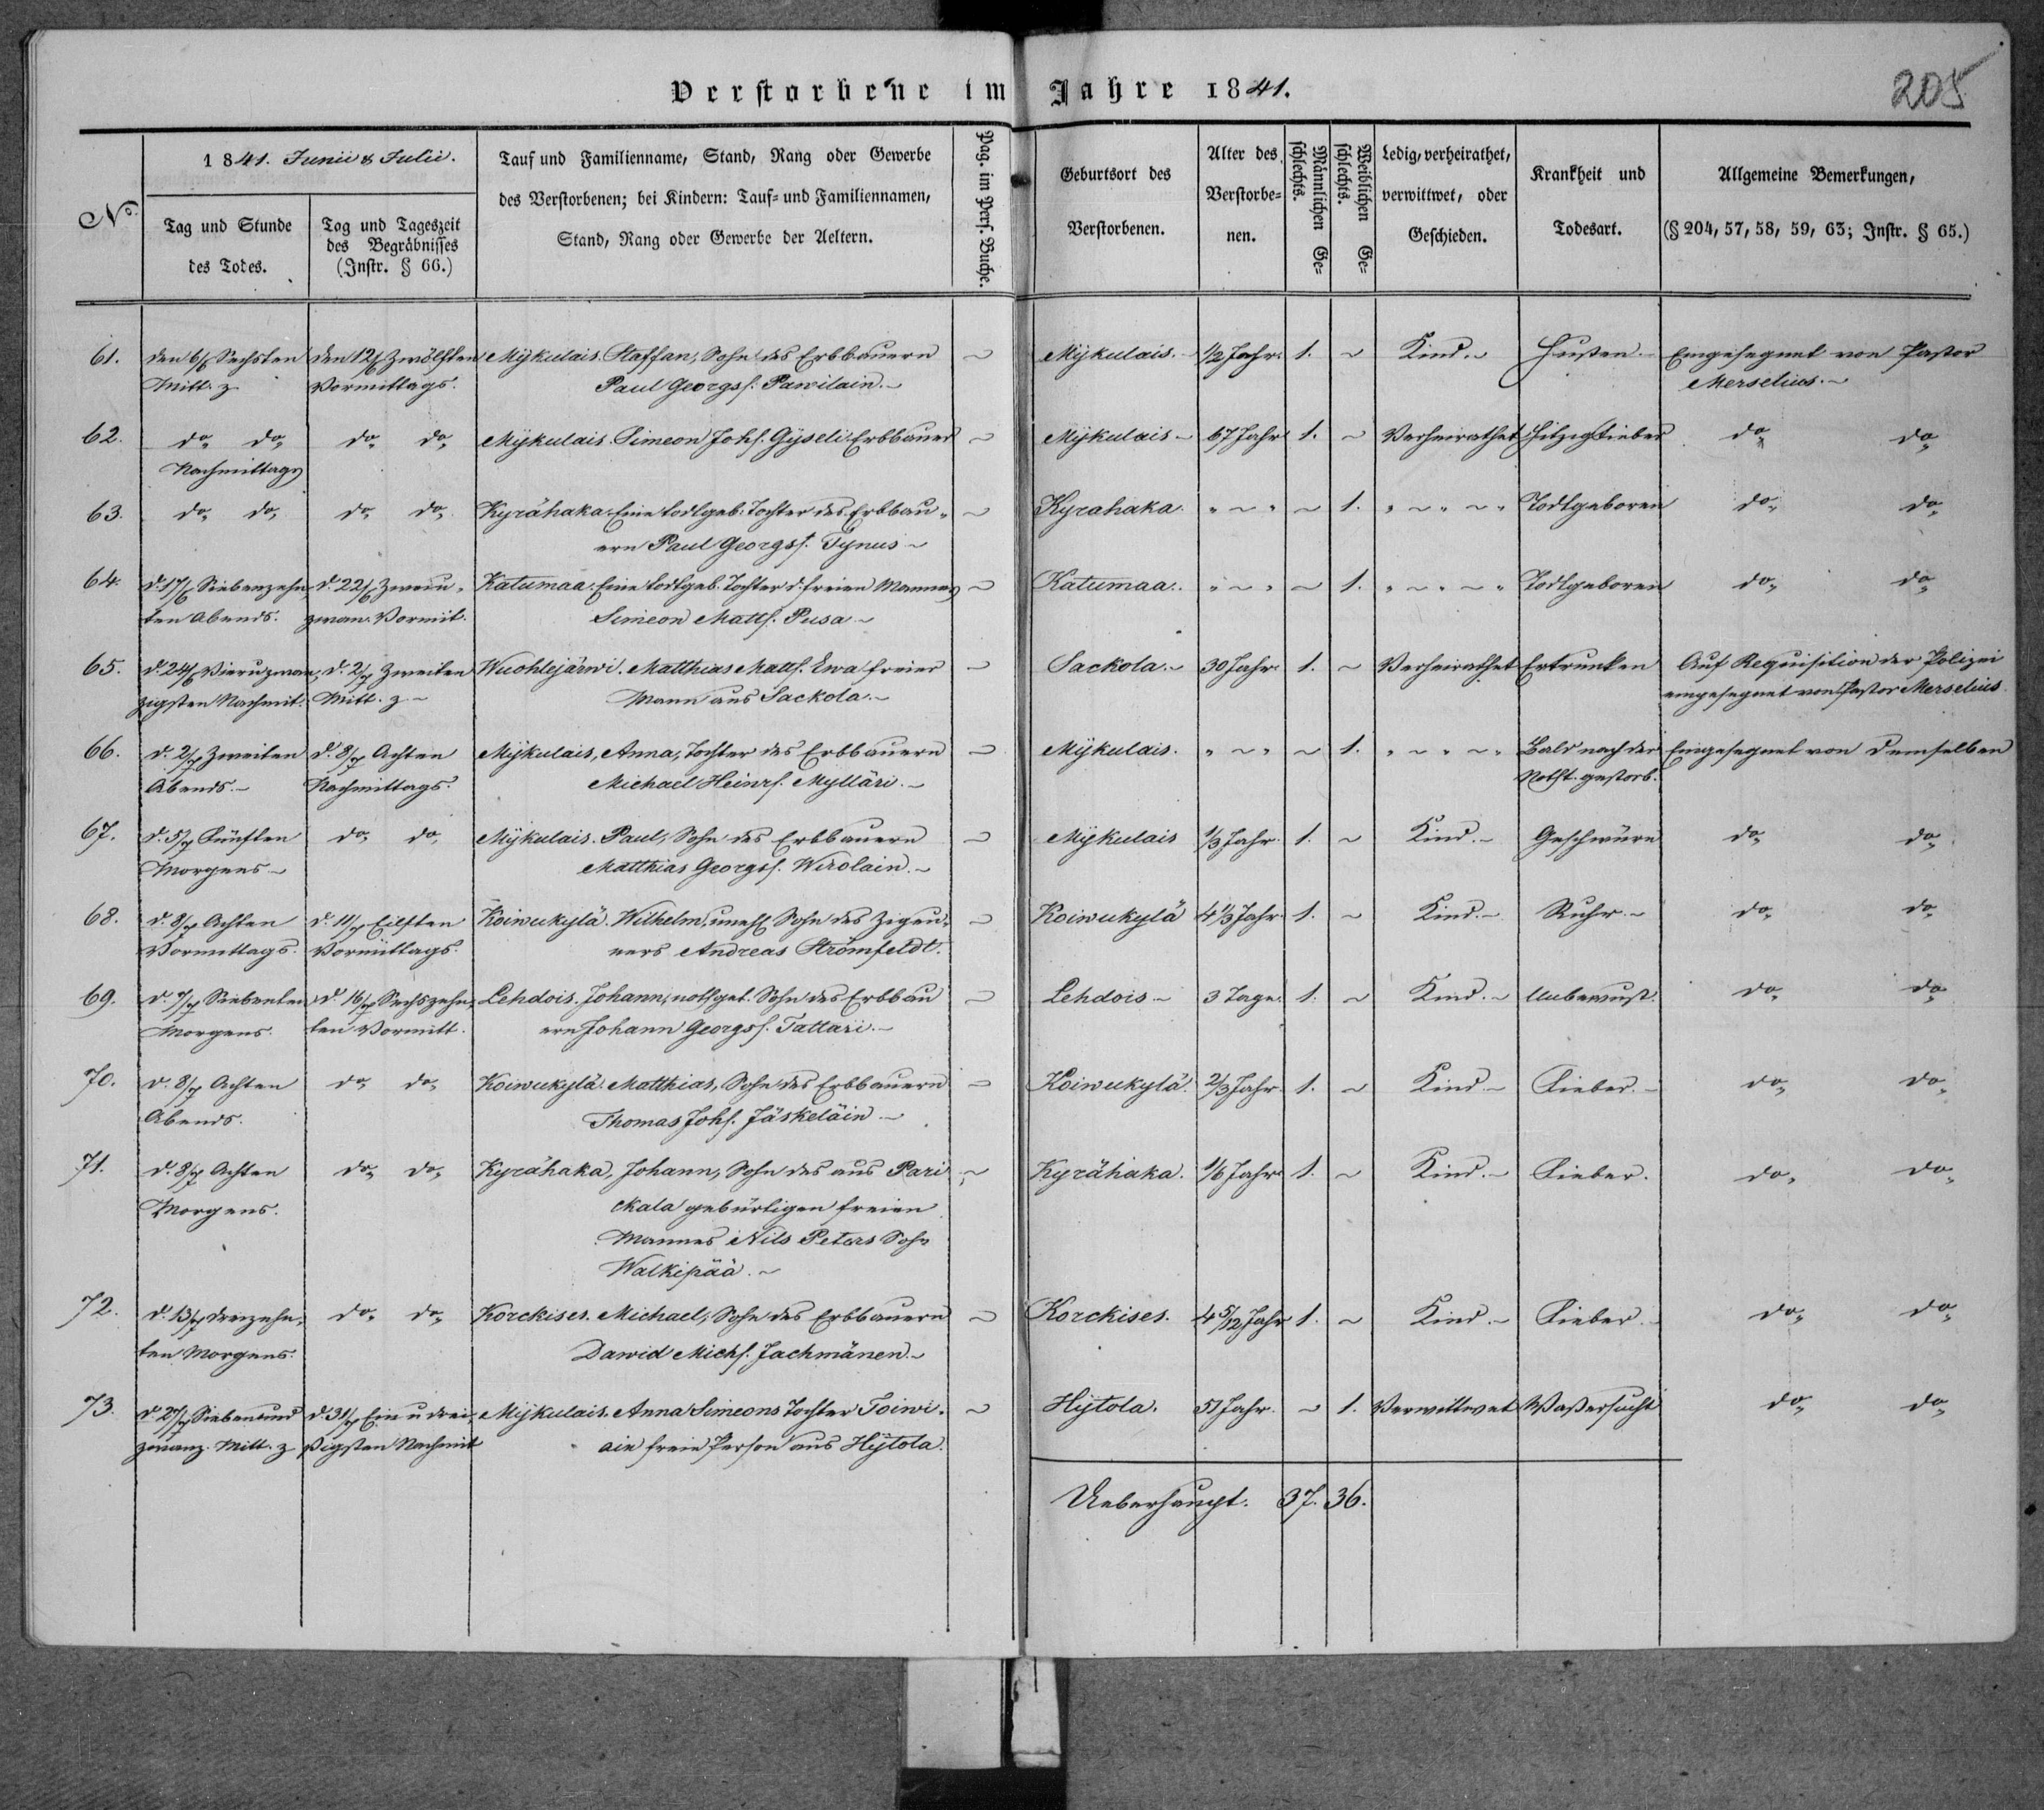 Verstorbene im Jahre 1841.
205
No.
1841. Junii & Julii.
Tag und Stunde des Todes.
Tag und Tageszeit des Begräbnisses (Instr. § 66.)
Tauf und Familienname, Stand, Rang oder Gewerbe
des Verstorbenen; bei Kindern: Tauf- und Familiennamen,
Stand, Rang oder Gewerbe der Aeltern.
Pag. im Pers. Buche.
Geburtsort des Verstorbenen.
Alter des Verstorbe-nen.
Männlichen Ge-schlechts.
Weiblichen Ge-schlechts.
Ledig, verheirathet, verwittwet, oder Geschieden.
Krankheit und Todesart.
Allgemeine Bemerkungen,
(§ 204, 57, 58, 59, 63; Instr. § 65.)
61. den 6/6 Sechsten den 12/6 Zwölften Mÿkulais. Staffan, Sohn des Erbbauern ~ Mÿkulais. 1/2 Jahr. 1. ~ Kind. Husten. Eingesegnet von Pastor
Mitt. z. Vormittags. Paul Georgss. Pawilain. Merselius.
62. do do do do Mÿkulais. Simeon Johs. Gÿseli Erbbauer ~ Mÿkulais 67 Jahr 1. ~ Verheirathet Hitzigfieber do do
Nachmittags
63. do do do do Kyrähaka. Eine todtgeb. Tochter des Erbbau- ~ Kyrahaka. " ~ " ~ 1. " ~ " ~ " Todtgeboren do do
ern Paul Georgss. Tynus
64. d. 17/6 Siebenzehn- d. 22/6 Zweiu- Katumaa. Eine todtgeb. Tochter d. freien Mannes ~ Katumaa. " ~ " ~ 1. " ~ " ~ " Todtgeboren do do
ten Abends. zwan. Vormit. Simeon Matts. Pusa
65. d. 24/6 Vieruzwan- d. 2/7 Zweiten Wuohlejärwi. Matthias Matts. Ewa freier ~ Sackola. 30 Jahr 1. ~ Verheirathet Ertrunken Auf Requisition der Polizei
zigsten Nachmit. Mitt. z Mann aus Sackola. eingesegnet von Pastor Merselius.
66. d. 2/7 Zweiten d. 8/7 Achten Mÿkulais, Anna, Tochter des Erbbauern ~ Mÿkulais. " ~ " ~ 1. " ~ " ~ " Bald nach der Eingesegnet von demselben
Abends. Nachmittags. Michael Heinrs. Mylläri. Notht. gestorb.
67. d. 5/7 Fünften do do Mÿkulais. Paul, Sohn des Erbbauern ~ Mÿkulais 1/3 Jahr. 1. ~ Kind. Geschwüre do do
Morgens Matthias Georgss. Wirolain.
68. d. 8/7 Achten d. 11/7 Eilften Koiwukylä. Wilhelm, unehl. Sohn des Zigeu- ~ Koiwukylä 4 1/3 Jahr. 1. ~ Kind. Ruhr. do do
Vormittags. Vormittags. ners Andreas Strömfeldt.
69. d. 7/7 Siebenten d. 16/7 Sechszehn- Lehdois. Johann, nothget. Sohn des Erbbau ~ Lehdois 3 Tage. 1. ~ Kind. Unbewußt. do do
Morgens. ten Vormitt. ern Johann Georgss. Tattari.
70. d. 8/7 Achten do do Koiwukylä. Matthias, Sohn des Erbbauern ~ Koiwukylä. 2/3 Jahr. 1. ~ Kind Fieber. do do
Abends. Thomas Johs. Jäskeläin
71. d. 8/7 Achten do do Kyrähaka, Johann, Sohn des aus Pari ~ Kyrähaka. 1/6 Jahr 1. ~ Kind. Fieber. do do
Morgens. ckala gebürtigen freien
Mannes Nils Peters Sohn
Walkipää.
72. d. 13/7 dreizehn- do do Korckises. Michael, Sohn des Erbbauern ~ Korckises. 4 5/12 Jahr 1. ~ Kind Fieber. do do
ten Morgens. Dawid Michs. Jachmänen.
73. d. 27/7 Siebenund d. 31/7 Ein u drei- Mÿkulais. Anna Simeons Tochter Toiwi- ~ Hÿtola. 51 Jahr. ~ 1. Verwittwet Waßersucht do do
zwanz. Mitt. z ßigsten Nachmit ain freie Person aus Hÿtola.
Ueberhaupt. 37. 36.